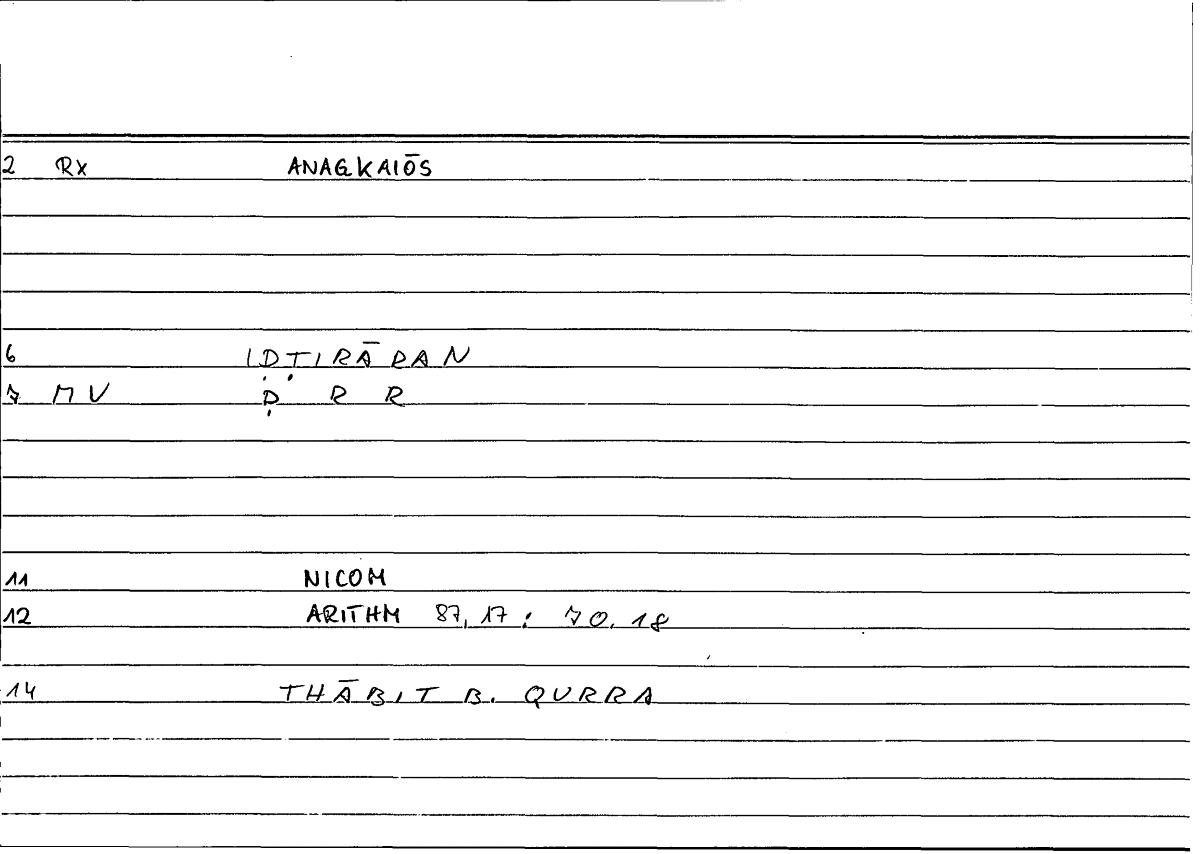 2 Rx ANAGKAIŌS
6 IḌṬIRĀRAN
7 MV Ḍ R R
11 NICOM
12 ARITHM 87,17 : 70,18
14 THĀBIT B. QURRA